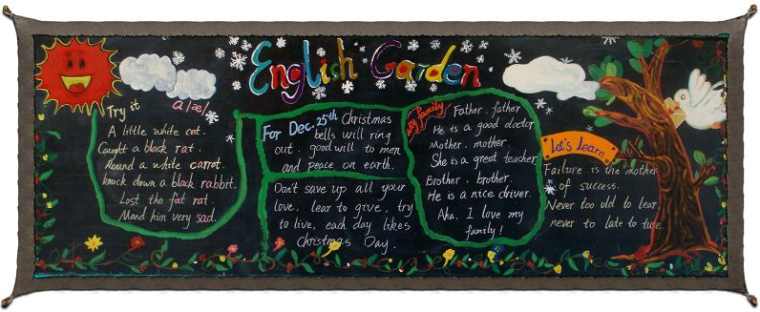 English Garden
Try it
a /æ/
A little white cat.
Caught a black rat.
Round a white carrot.
knock down a black rabbit.
Lost the fat rat
Mand him very sad.
For Dec. 25th Christmas
bells will ring
out. good will to men
and peace on earth.
Don't save up all your
love, lear to give, try
to live, each day likes
Christmas Day.
My family
Father, father
He is a good doctor
Mother, mother
She is a great teacher
Brother, brother.
He is a nice driver.
Aha. I love my
family!
Let's learn
Failure is the mother
of success.
Never too old to lear
never to late to